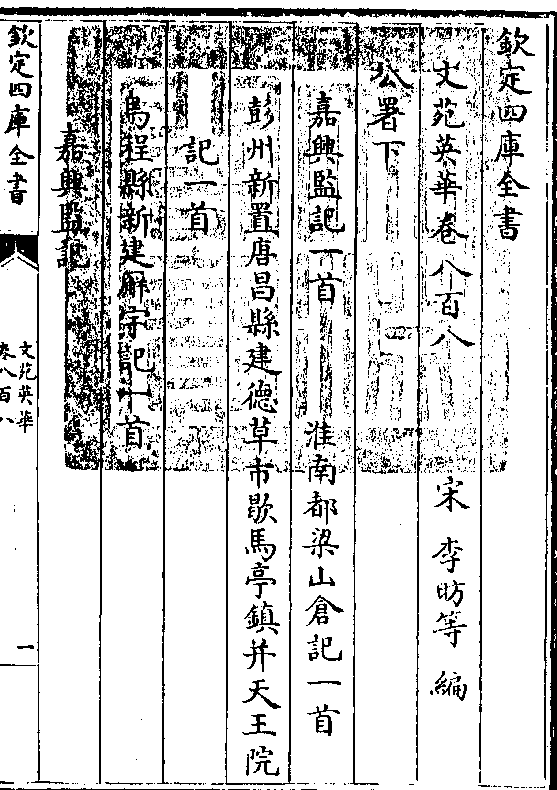 欽定四庫全書
文苑英華卷八百八
宋 李昉等 編
公署下
嘉興監記一首 淮南都梁山倉記一首
彭州新置唐昌縣建德草市歇馬亭鎮并天王院
記一首
烏程縣新建廨宇記一首
嘉興監記
欽定四庫全書
文苑英華
卷八百八
一